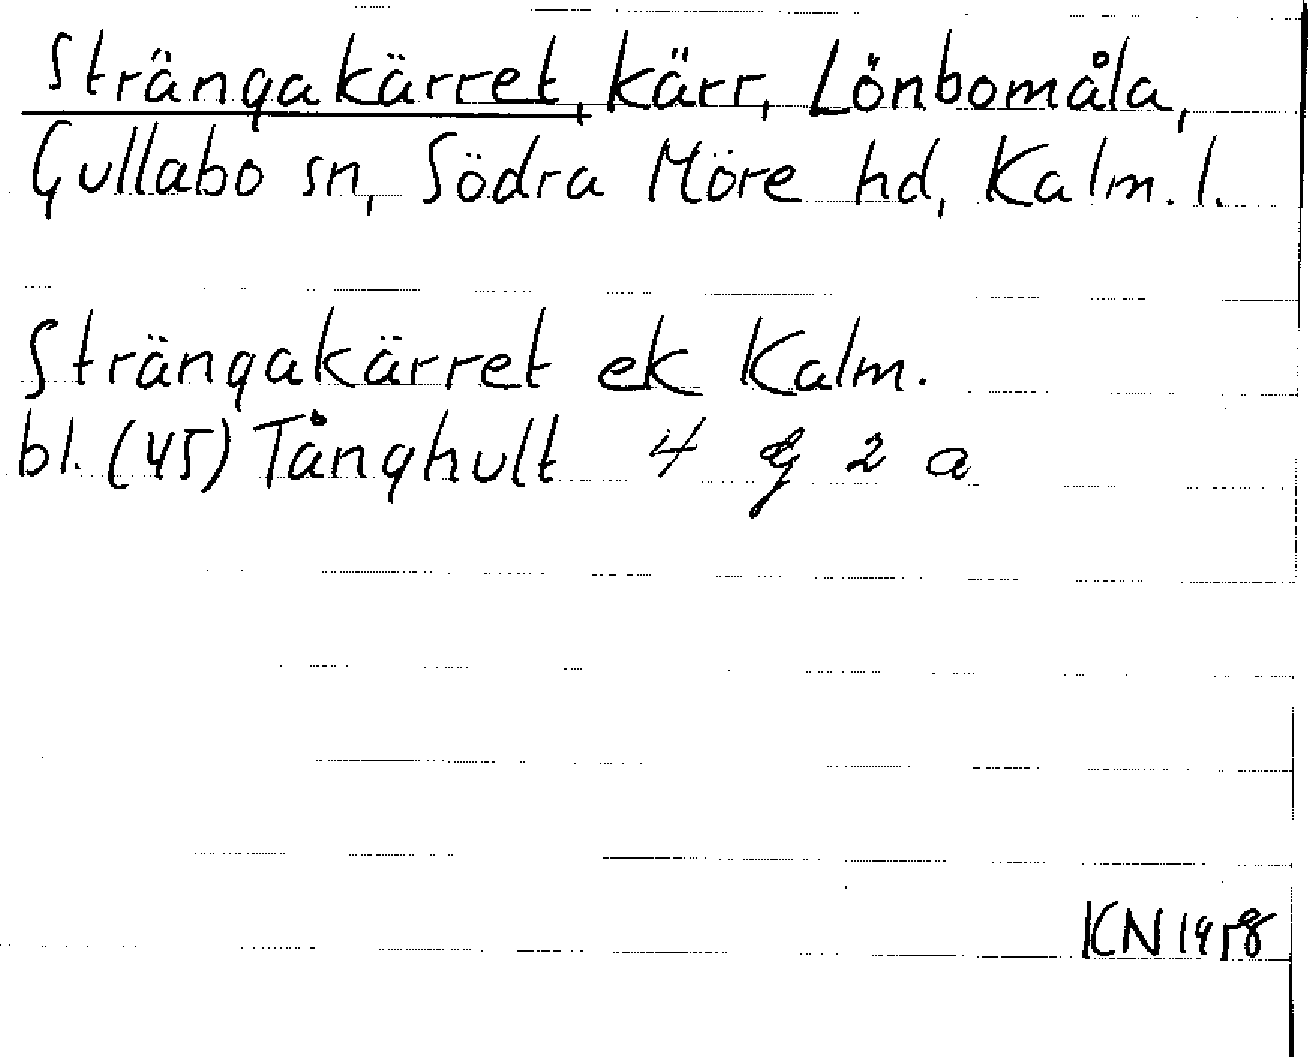 Strängakärret, kärr, Lönbomåla,
Gullabo sn, Södra Möre hd, Kalm. l.
Strängakärret ek Kalm.
bl. (45) Tånghult 4 g 2 a
KN 1958